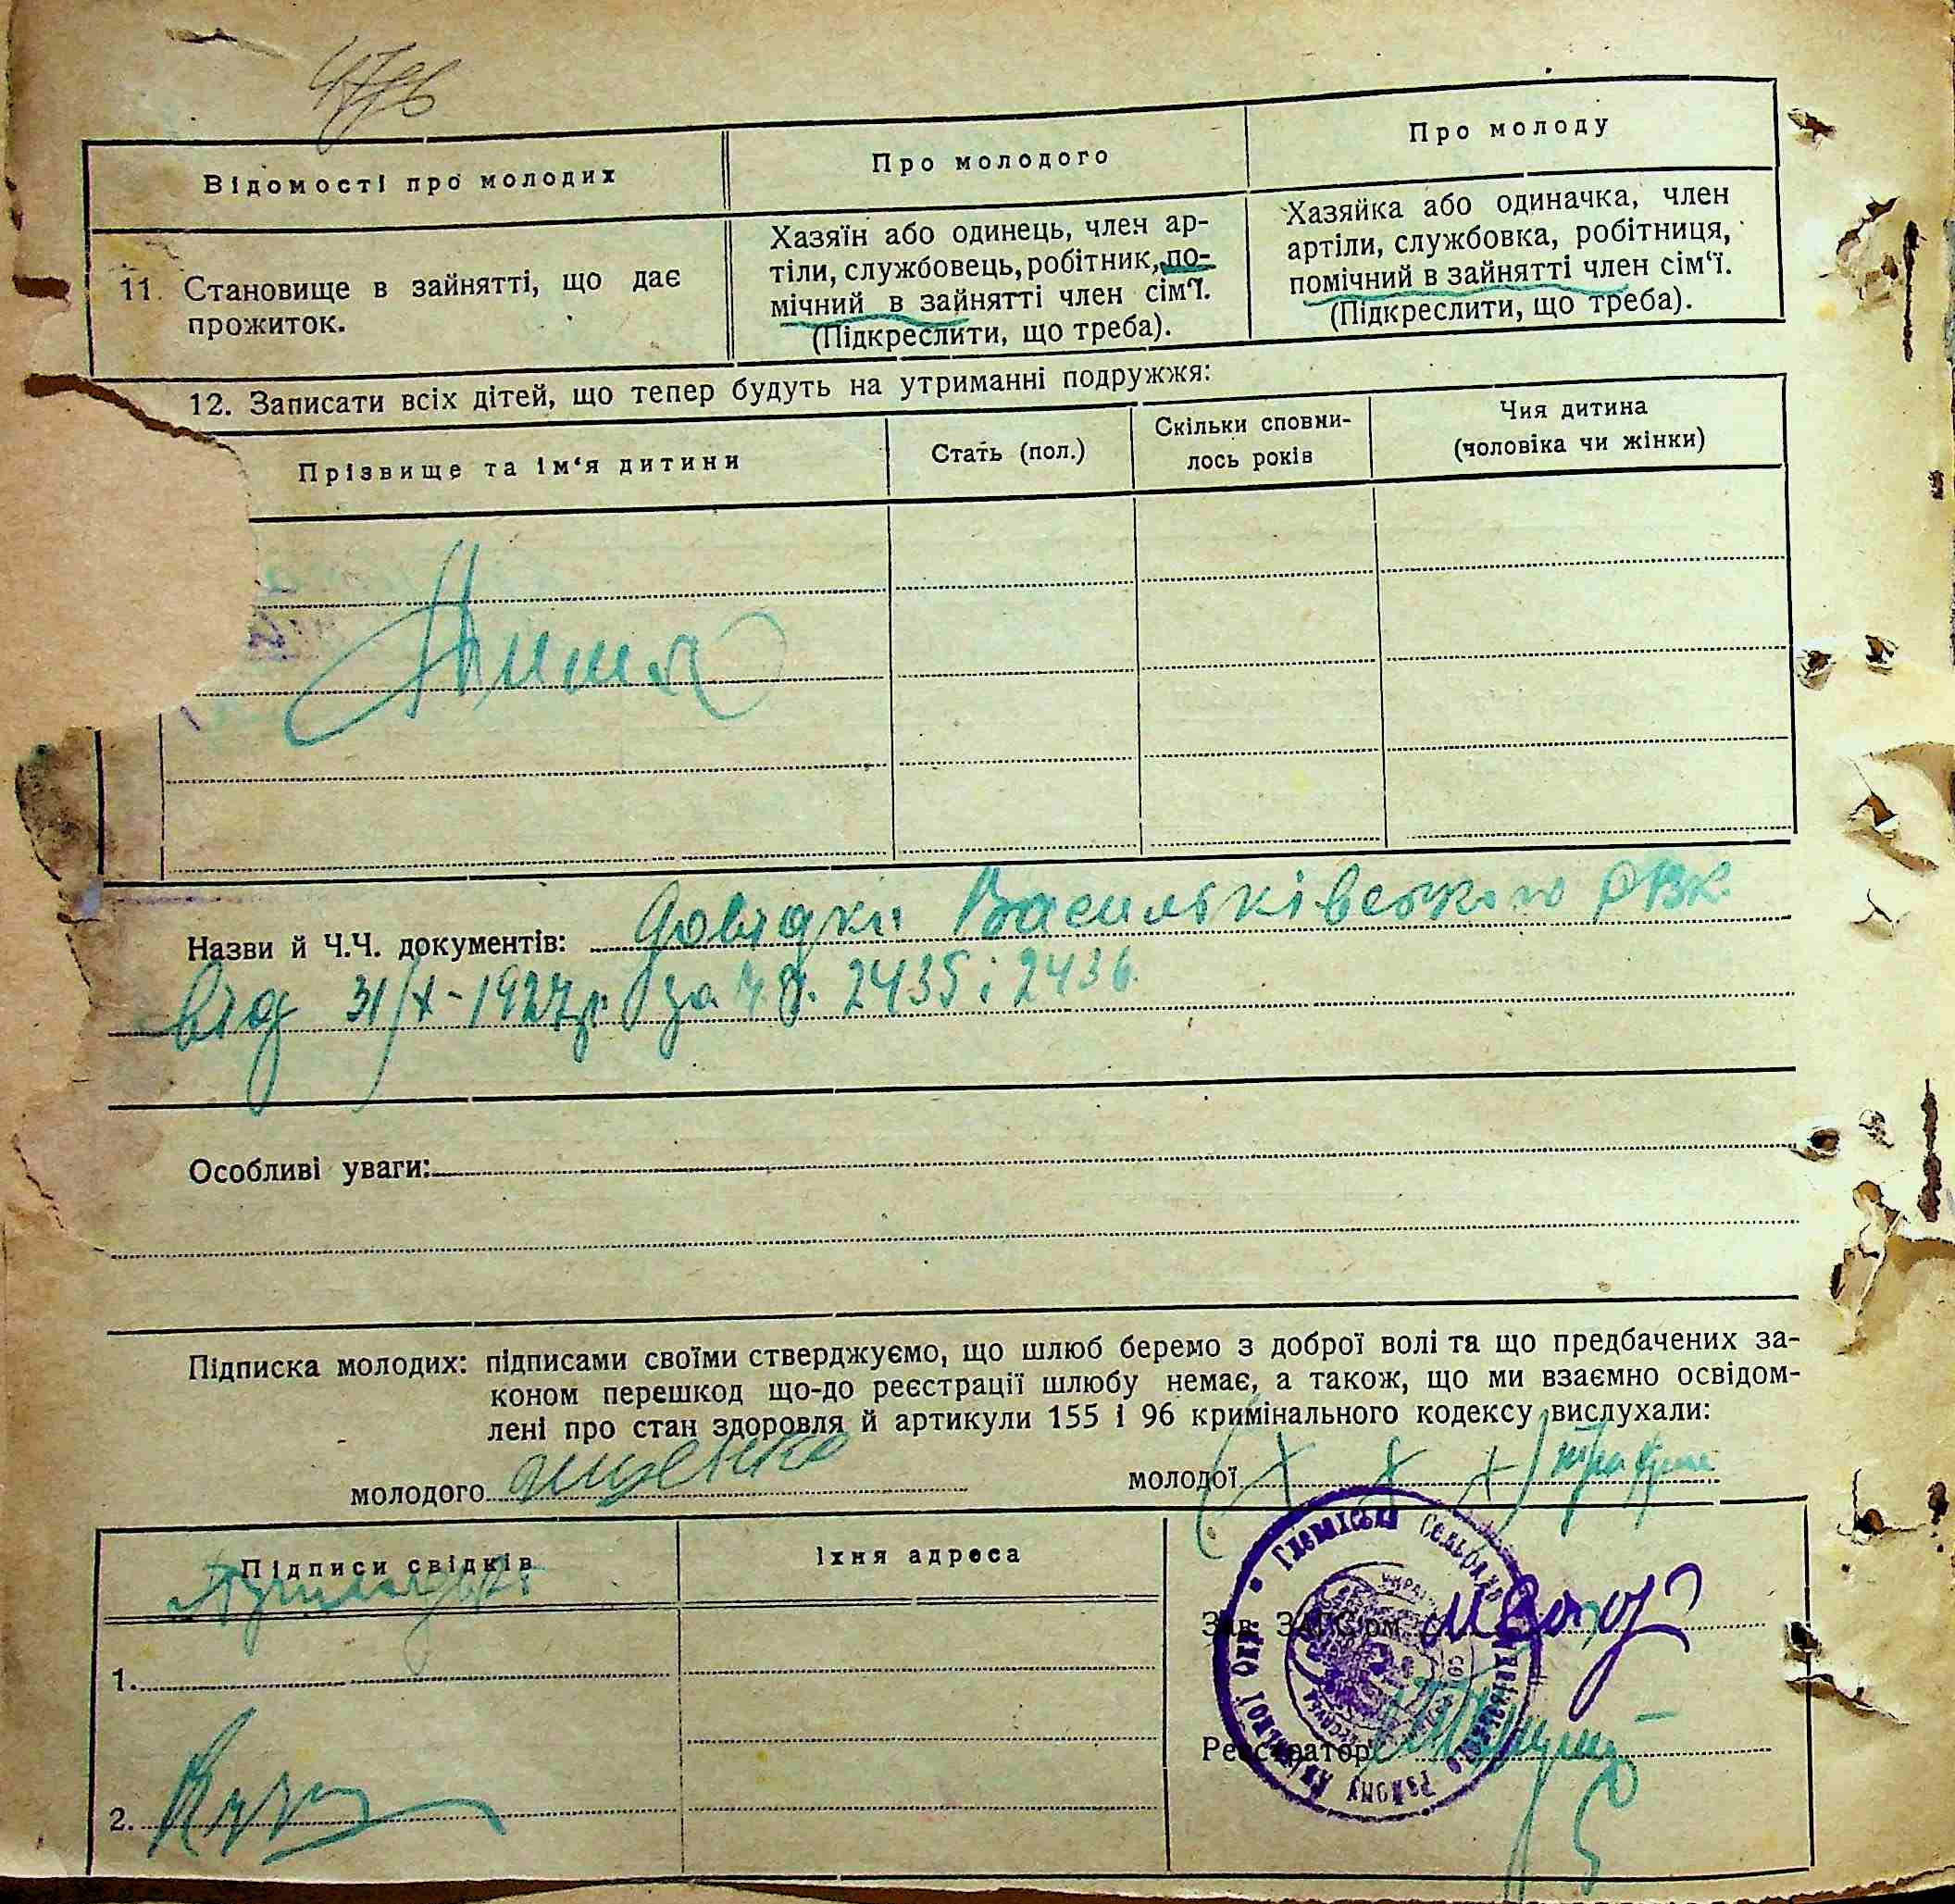 Відомості про молодих
Про молодого
Про молоду
11. Становище в зайнятті, що дає
прожиток.
Хазяїн або одинець, член ар-
тіли, службовець, робітник, по-
мічний в зайнятті член сім'ї.
(Підкреслити, що треба).
Хазяйка або одиначка, член
артіли, службовка, робітниця,
помічний в зайнятті член сім'ї.
(Підкреслити, що треба).
12. Записати всіх дітей, що тепер будуть на утриманні подружжя:
Прізвище та ім'я дитини
Стать (пол.)
Скільки сповни-
лось років
Чия дитина
(чоловіка чи жінки)
Назви й Ч.Ч. документів: довідки Васильківського РВК
від 31/X-1927р. за ч.ч. 2435 і 2436
Особливі уваги:
Підписка молодих: підписами своїми стверджуємо, що шлюб беремо з доброї волі та що предбачених за-
коном перешкод що-до реєстрації шлюбу немає, а також, що ми взаємно освідом-
лені про стан здоровля й артикули 155 і 96 кримінального кодексу вислухали:
молодого
молодої (+ + +)
Підписи свідків
Їхня адреса
1.
2.
Зав. ЗАПС'ом
Реєстратор